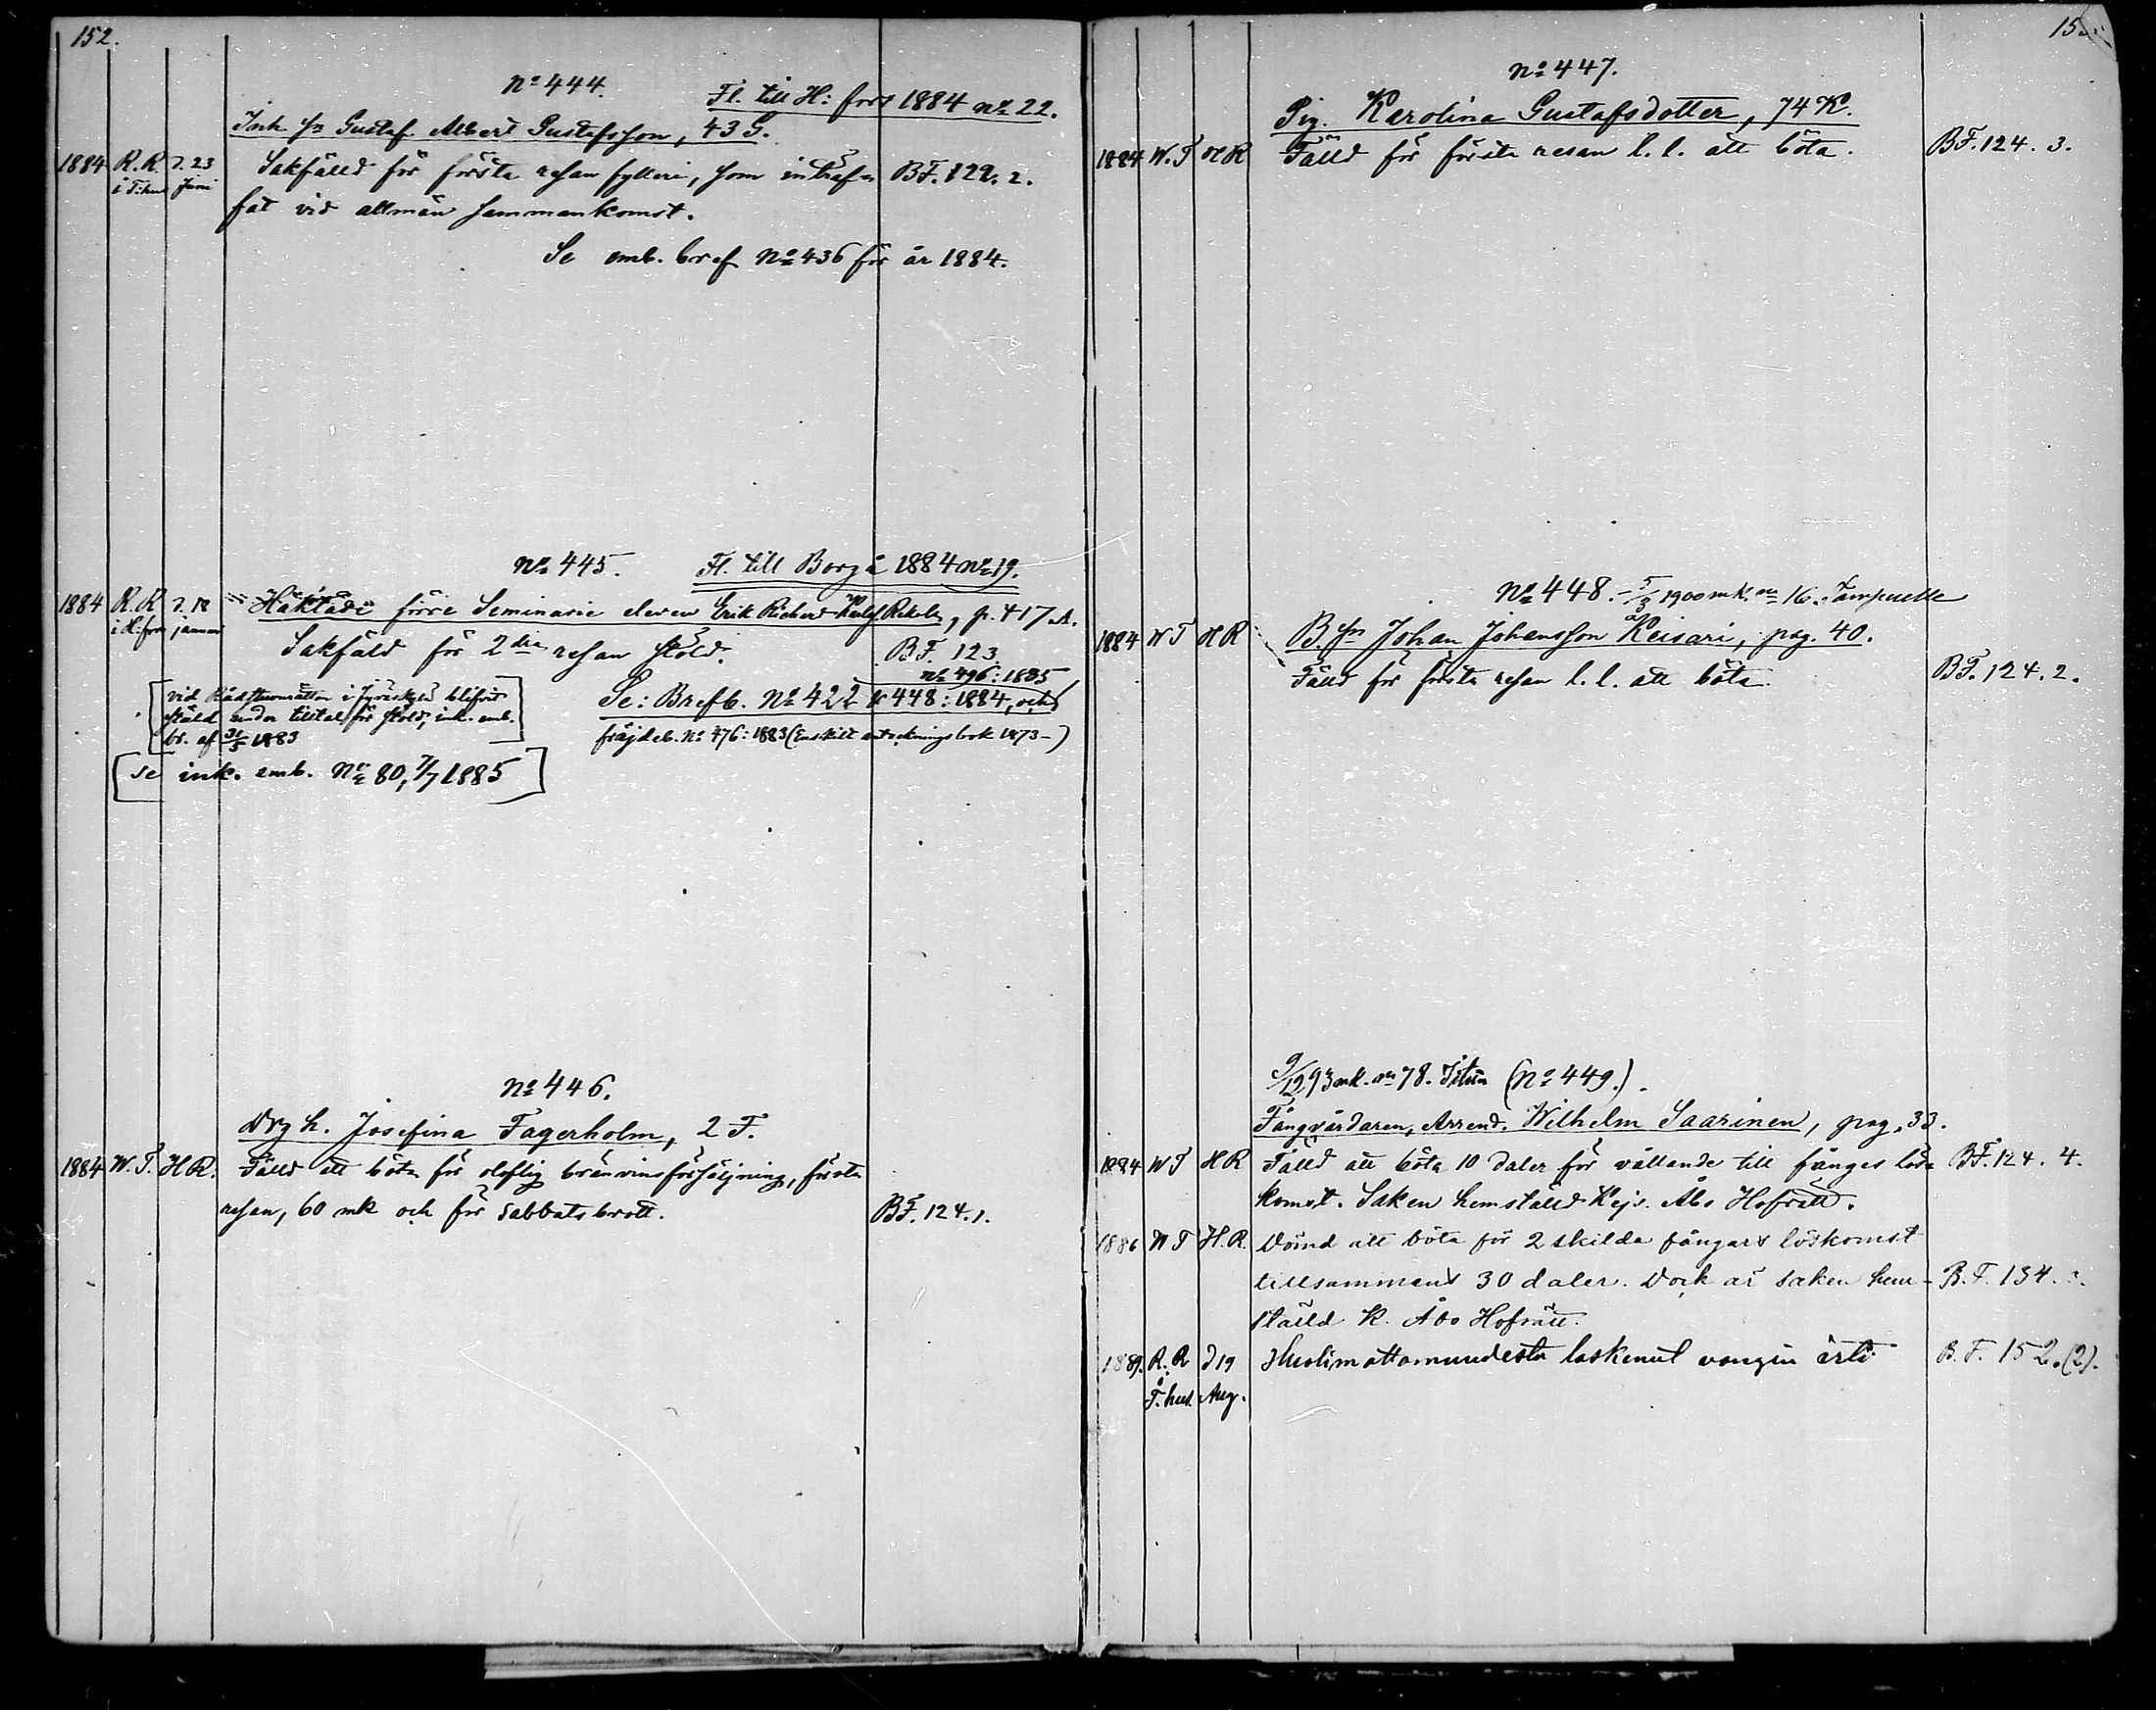 152.
No 444.
Fl. till H:fors 1884 No 22.
Inh. sn Gustaf Albert Gustafsson, 43 G.
1884 R.R. d. 23 Sakfälld för första resan fylleri, som inträf- BF. 122. 2.
i T:hus Juni
fat vid allmän sammankomst.
Se emb. bref No 436 för år 1884.
No 445. Fl. till Borgå 1884 No 19.
1884 R.R d. 18 Häktade förre Seminarie eleven Erik Richard Rekola, p. 417 A.
i H:fors januari
Sakfäld för 2dra resan stöld. BF. 123
No 496: 1885
[vid Rådstuvurätten i Jyväskylä blifvit
Se: Brefb. No 422 & 448: 1884, och
stäld under tilltal för stöld, ink. emb.
br. af 31/5 1883]
fräjdeb. No 476: 1883 (Enskilt anteckningsbok 1873-)
[se ink. emb. No 80, 7/7 1885]
No 446.
Drg h. Josefina Fagerholm, 2 F.
1884 W.T. H R. Fälld att böta för oloflig bränvinsförsäljning, första
resan, 60 mk och för sabbatsbrott. BF. 124. 1.
No 447.
Pig. Karolina Gustafsdotter, 74 K.
1884 W.T H R Fälld för första resan l. l. att böta. BF. 124. 3.
No 448. 5/3 1900 mk. no 16.
B. sn Johan Johansson Keisari, pag. 40.
1884 W T H R
Fälld för första resan l. l. att böta. BF. 124. 2.
9/12 93 mk. no 78. (No 449.).
Fångvårdaren, Arrend. Wilhelm Saarinen, pag. 33.
1884 W T H R Fälld att böta 10 daler för vållande till fånges lös- BF. 124. 4.
komst. Saken hemställd Kejs. Åbo Hofrätt.
1886 W T H.R. Dömd att böta för 2 skilda fångars löskomst
tillsammans 30 daler. Dock är saken hem- B.F. 134.
ställd K. Åbo Hofrätt.
1889. R.R d 19 Huolimattomuudesta laskenut vangin irti B.F. 152. (2).
T.hus. Aug.